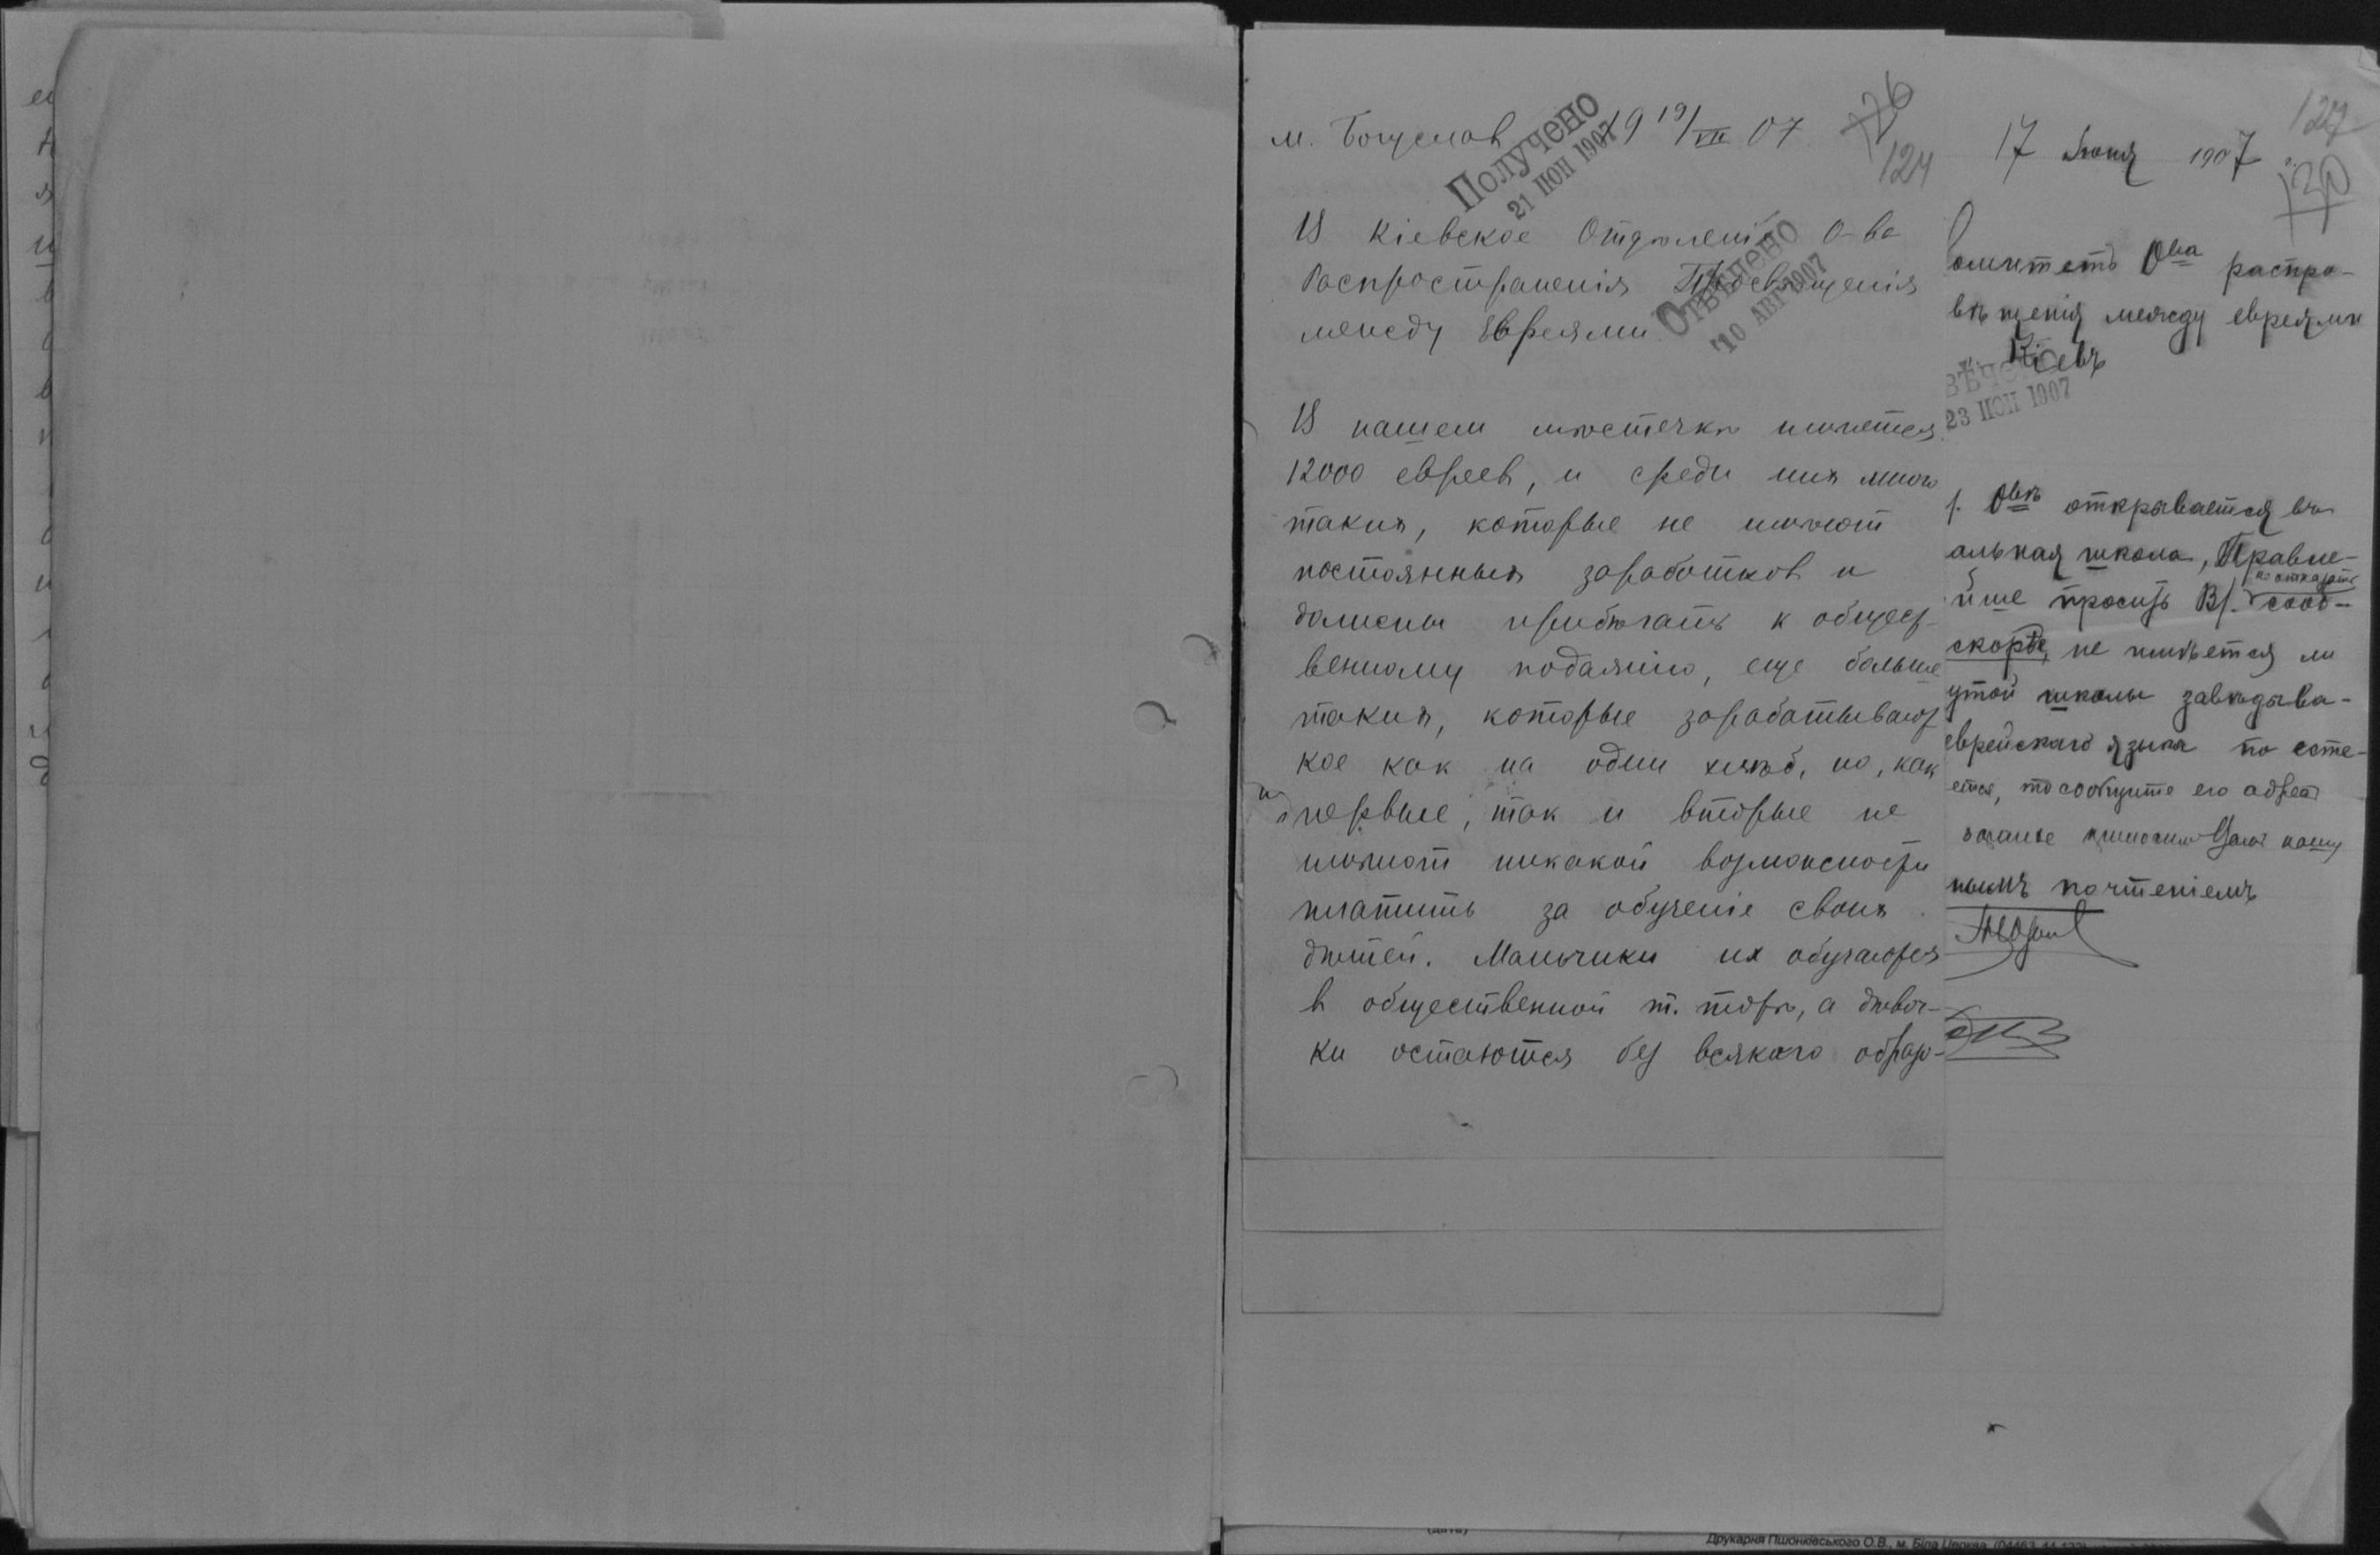 м. Богуслав 19 19/VII 07.
126
124
Получено
21 ИОН 1907
В Кіевское Отдѣленіе О-ва
Распространенія Просвѣщенія
между Евреями
Отвѣчено
10 АВГ 1907
В нашем мѣстечкѣ имѣется
12000 евреев, и среди них много
таких, которые не имѣют
постоянных заработков и
должны прибѣгать к общест-
венному подаянію, еще больше
таких, которые зарабатывают
кое как на один хлѣб, но, как
первые, так и вторые не
имѣют никакой возможности
платить за обученіе своих
дѣтей. Мальчики их обучаются
в общественной т. торѣ, а дѣвоч-
ки остаются без всякого образо-
127
130
17 Іюня 1907 г.
омитетъ Ова распро-
вѣщенія между евреями
Кіевъ
ВѢЧЕНО
23 ИОН 1907
г. Овѣ открывается въ
альная школа, Правле-
не отказать
йше проситъ В/. сооб-
скорѣе, не имѣется ли
утой школы завѣдыва-
еврейскаго языка по есте-
ется, то сообщите его адрес
нымъ почтеніемъ
Друкарня Пшонківського О.В., м. Біла Церква
(дата)